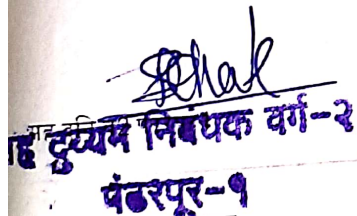 सह दुय्यम निबंधक वर्ग-२
पंढरपूर-१